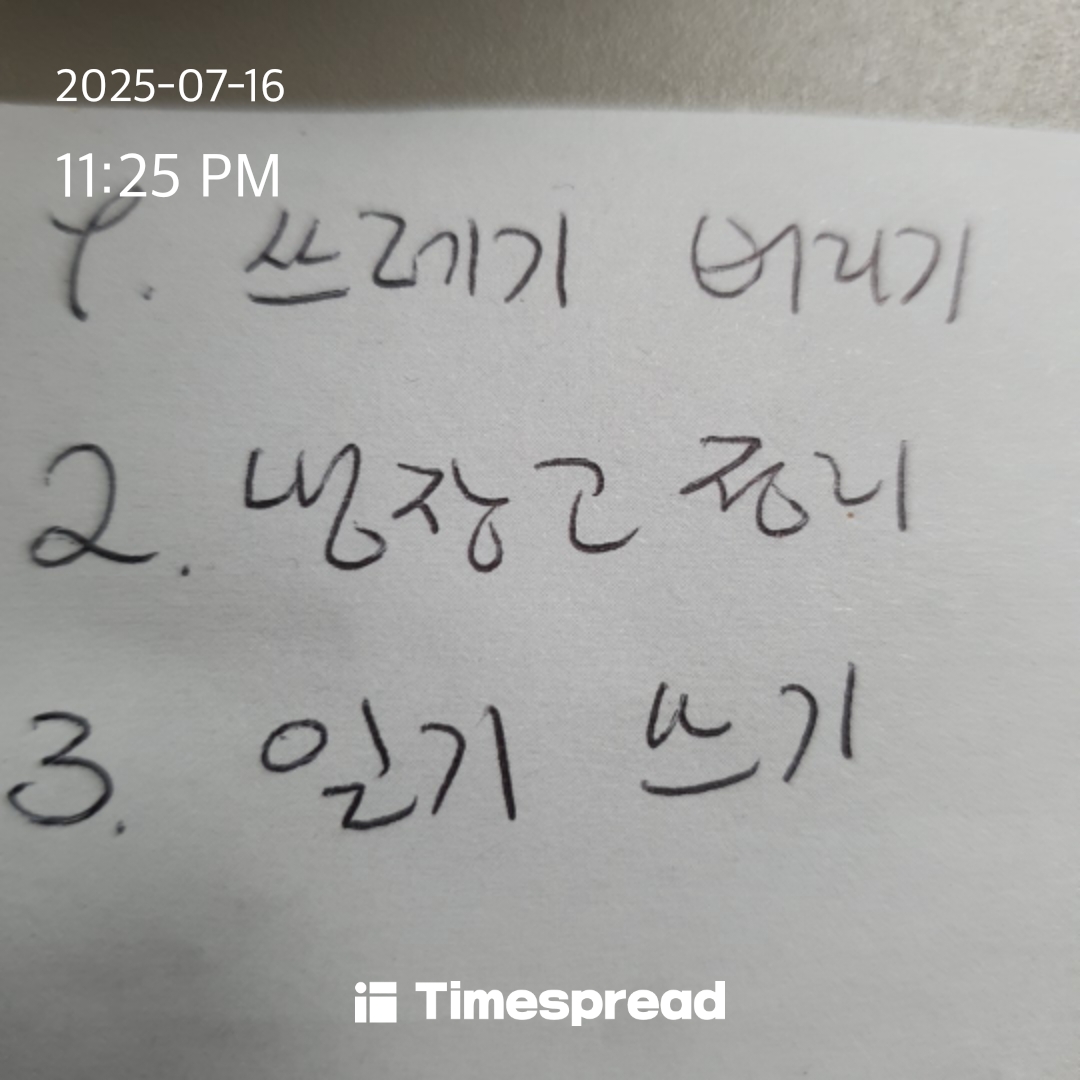 2025-07-16
11:25 PM
1. 쓰레기 버리기
2. 냉장고 정리
3. 일기 쓰기
Timespread